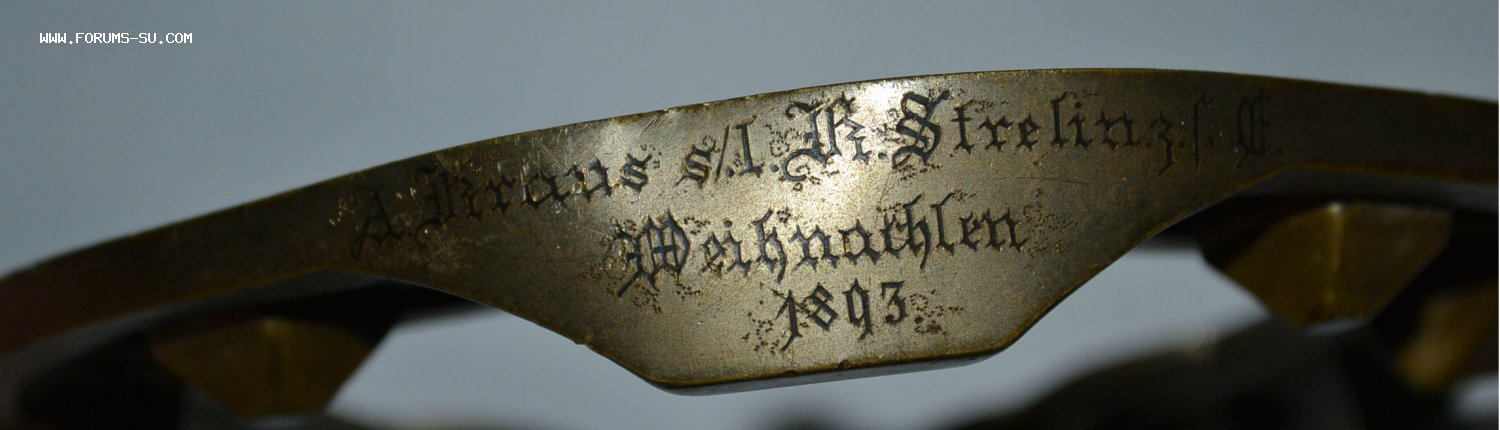 WWW.FORUMS-SU.COM
A. Kraus s/l. K. Strelin z. f. E.
Weihnachten
1893